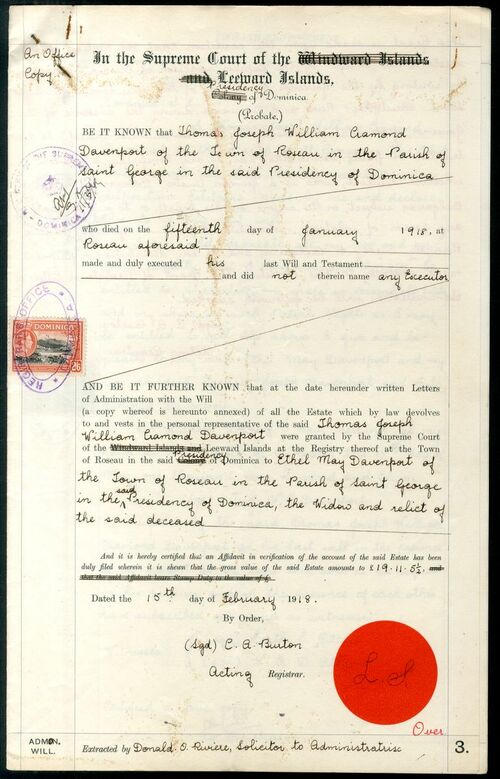 An Office
Copy.
In the Supreme Court of the Windward Islands
and Leeward Islands,
Presidency
Colony of Dominica.
(Probate.)
BE IT KNOWN that Thomas Joseph William Cramond
Davenport of the Town of Roseau in the Parish of
Saint George in the said Presidency of Dominica
DOMINICA
who died on the fifteenth day of January 1918, at
Roseau aforesaid
made and duly executed his last Will and Testament
and did not therein name any Executor
REGISTRAR'S OFFICE
DOMINICA
2/6
AND BE IT FURTHER KNOWN that at the date hereunder written Letters
of Administration with the Will
(a copy whereof is hereunto annexed) of all the Estate which by law devolves
to and vests in the personal representative of the said Thomas Joseph
William Cramond Davenport were granted by the Supreme Court
of the Windward Islands and Leeward Islands at the Registry thereof at the Town
Presidency
of Roseau in the said Colony of Dominica to Ethel May Davenport of
the Town of Roseau in the Parish of Saint George
said
in the Presidency of Dominica, the Widow and relict of
the said deceased
And it is hereby certified that an Affidavit in verification of the account of the said Estate has been
duly filed wherein it is shewn that the gross value of the said Estate amounts to £19.11.5½, and
that the said Affidavit bears Stamp Duty to the value of £
Dated the 15th day of February 1918.
By Order,
(Sgd) C. A. Burton
Acting Registrar.
L.S
Over
ADMON.
WILL.
Extracted by Donald O. Riviere, Solicitor to Administratrix
3.